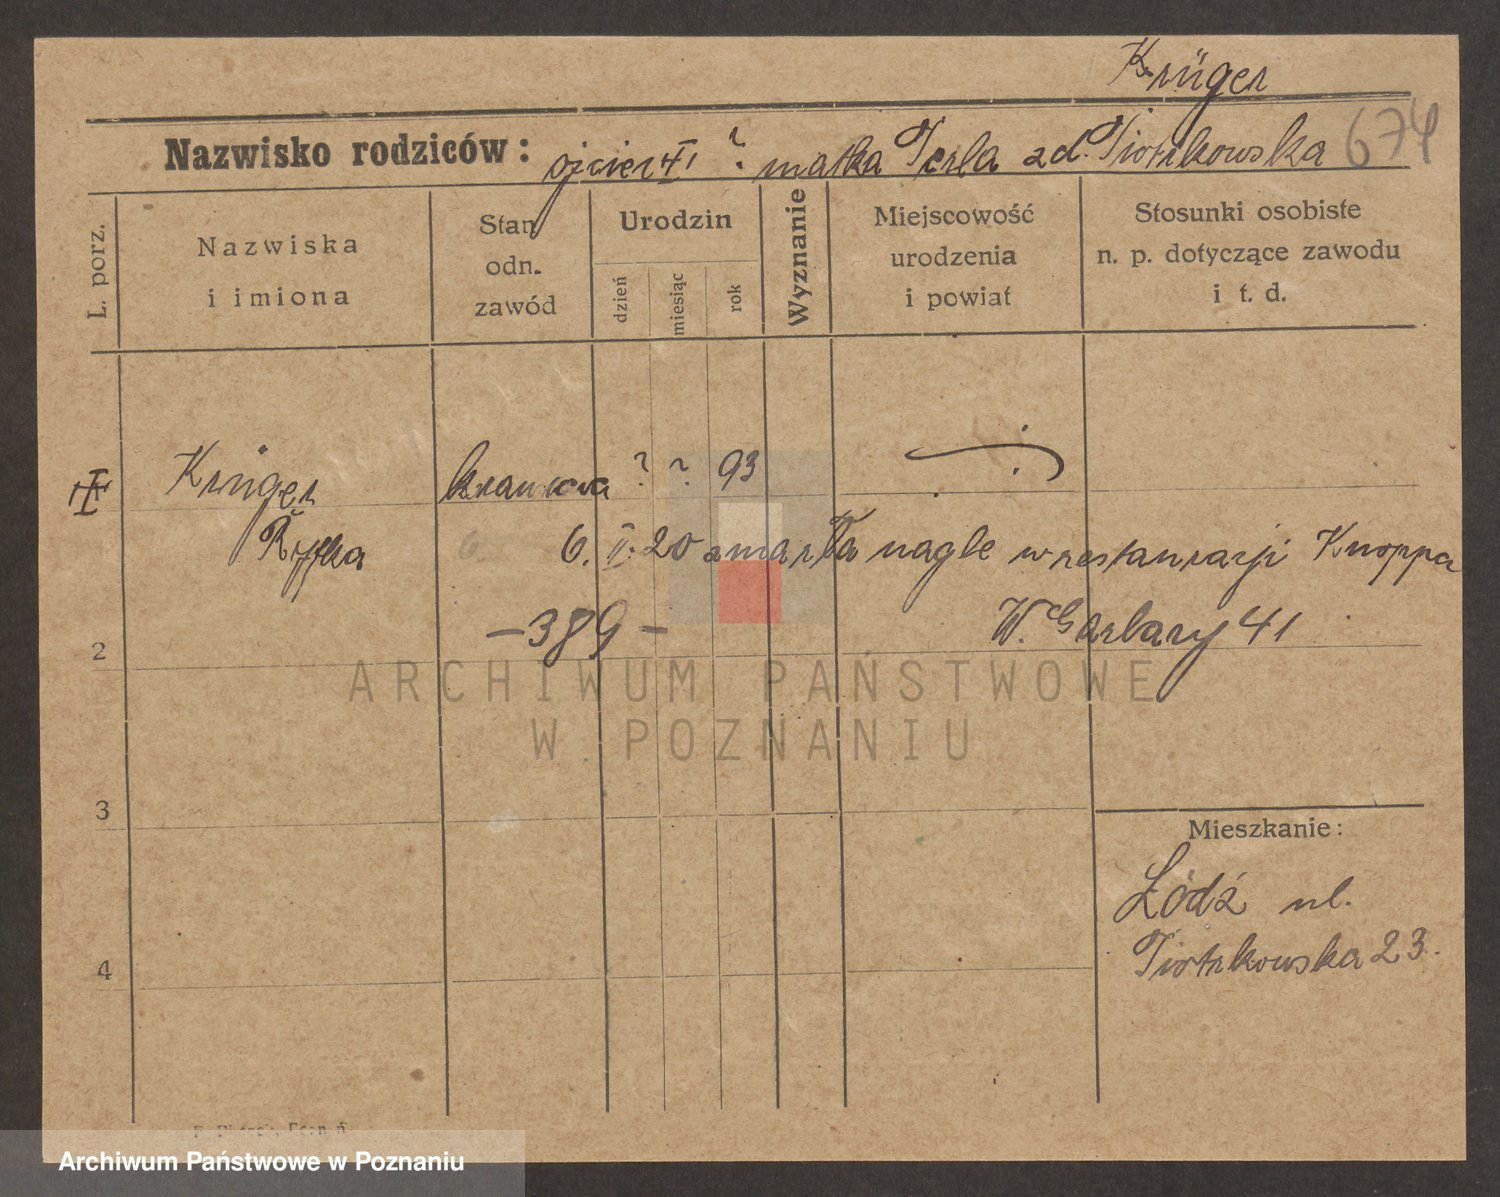 Krüger
Nazwisko rodziców: ojciec ? matka Perla zd. Piotrkowska 674
L. porz.
Nazwiska
i imiona
Stan
odn.
zawód
Urodzin
dzień
miesiąc
rok
Wyznanie
Miejscowość
urodzenia
i powiat
Stosunki osobiste
n. p. dotyczące zawodu
i t. d.
Krüger krawcowa ? ? 93
Ryfka 6. II. 20 zmarła nagle w restauracji Knoppa
– 389 – W. Garbary 41
2
3
4
Mieszkanie:
Łódź ul.
Piotrkowska 23.
ARCHIWUM PAŃSTWOWE
W POZNANIU
Archiwum Państwowe w Poznaniu